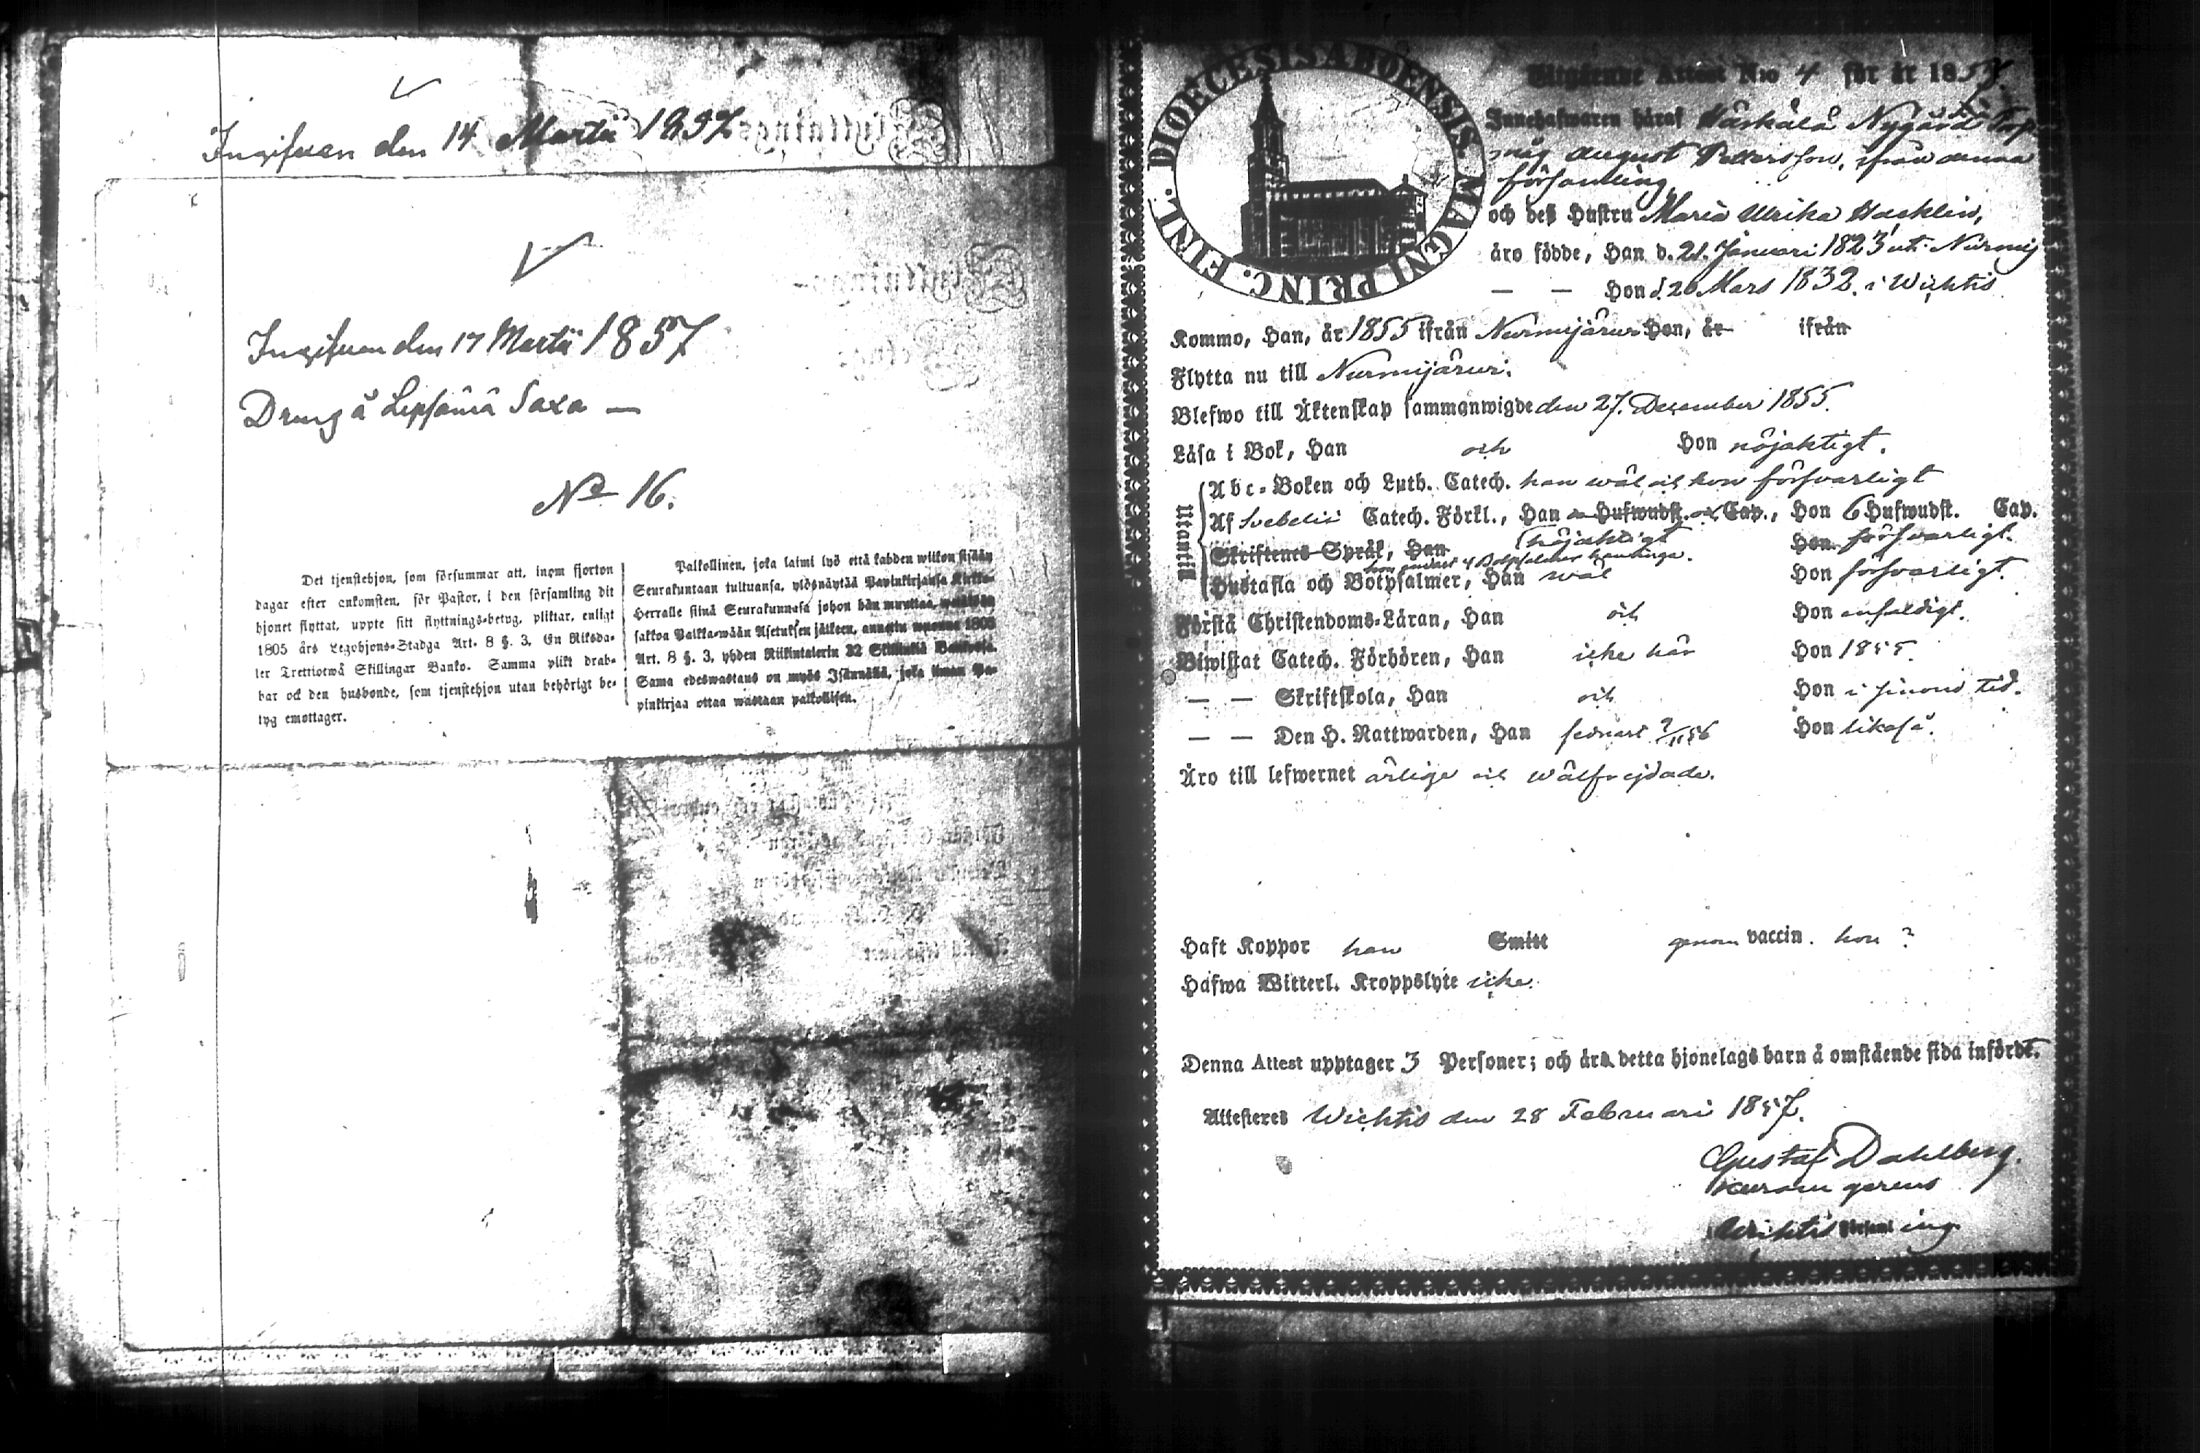 Ingifven den 14 Martii 1857
Ingifven den 17 Martii 1857
Dreng å Lepsämä Saxa —
No 16.
Det tjenstehjon, som försummar att, inom fjorton
dagar efter ankomsten, för Pastor, i den församling dit
hjonet flyttat, uppte sitt flyttnings-betyg, pliktar, enligt
1805 års Legohjons-Stadga Art. 8 §. 3, En Riksda-
ler Trettiotwå Skillingar Banko. Samma plikt drab-
bar ock den husbonde, som tjenstehjon utan behörigt be-
tyg emottager.
Palkollinen, joka laimi lyö että kahden wiikon sisään
Seurakuntaan tultuansa, ylösnäyttää Papinkirjansa Kirkko-
Herralle siinä Seurakunnasa johon hän muuttaa, wetäköön
sakkoa Palkka-wään Asetuksen jälkeen, annettu wuonna 1805
Art. 8 §. 3, yhden Riikintalerin 32 Skillinkiä Bankosa.
Sama edeswastaus on myös Isännällä, joka ilman Pa-
pinkirjaa ottaa wastaan palkollisen.
DIOECESIS ABOENSIS. MAGNI PRINC. FINL.
Utgående Attest N:o 4 för år 1857.
Innehafwaren häraf Härkälä Nygårds Torp
måg August Pettersson, ifrån denna
församling
och deß Hustru Maria Ulrika Hacklin,
äro födde, Han d. 21. Januari 1823 uti Nurmij
— — Hon d. 26 Mars 1832. i Wichtis
Kommo, Han, år 1855 ifrån Nurmijärwi Hon, år ifrån
Flytta nu till Nurmijärwi.
Blefwo till Äktenskap sammanwigde den 27. December 1855.
Läsa i Bok, Han och Hon nöjaktigt.
Utantill
Abc-Boken och Luth. Catech. han wäl och hon försvarligt
Af Svebelii Catech. Förkl., Han Hufwudst. Cap., Hon 6 Hufwudst. Cap.
Skriftenes Språk, Han nöjaktigt Hon försvarligt.
Hustafla och Botpsalmer, Han wäl Hon försvarligt.
Förstå Christendoms-Läran, Han och Hon enfaldigt.
Biwistat Catech. Förhören, Han icke här Hon 1855.
— — Skriftskola, Han och Hon i sinom tid.
— — Den H. Nattwarden, Han senast 2/11 56 Hon likaså.
Äro till lefwernet ärlige och wälfrejdade.
Haft Koppor han Smitt genom vaccin. hon ?
Hafwa Witterl. Kroppslyte icke.
Denna Attest upptager 3 Personer; och äro detta hjonelags barn å omstående sida införde.
Attesteres Wichtis den 28 Februari 1857.
Gustaf Dahlberg.
curam gerens
Wichtis Församling